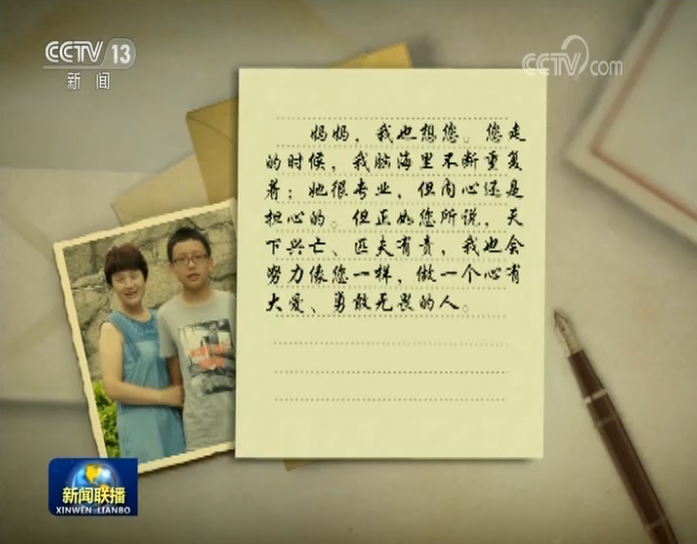 CCTV 13
新闻
CCTV.com
妈妈，我也想您。您走
的时候，我脑海里不断重复
着：她很专业，但内心还是
担心的。但正如您所说，天
下兴亡、匹夫有责，我也会
努力像您一样，做一个心有
大爱、勇敢无畏的人。
新闻联播
XINWEN LIANBO